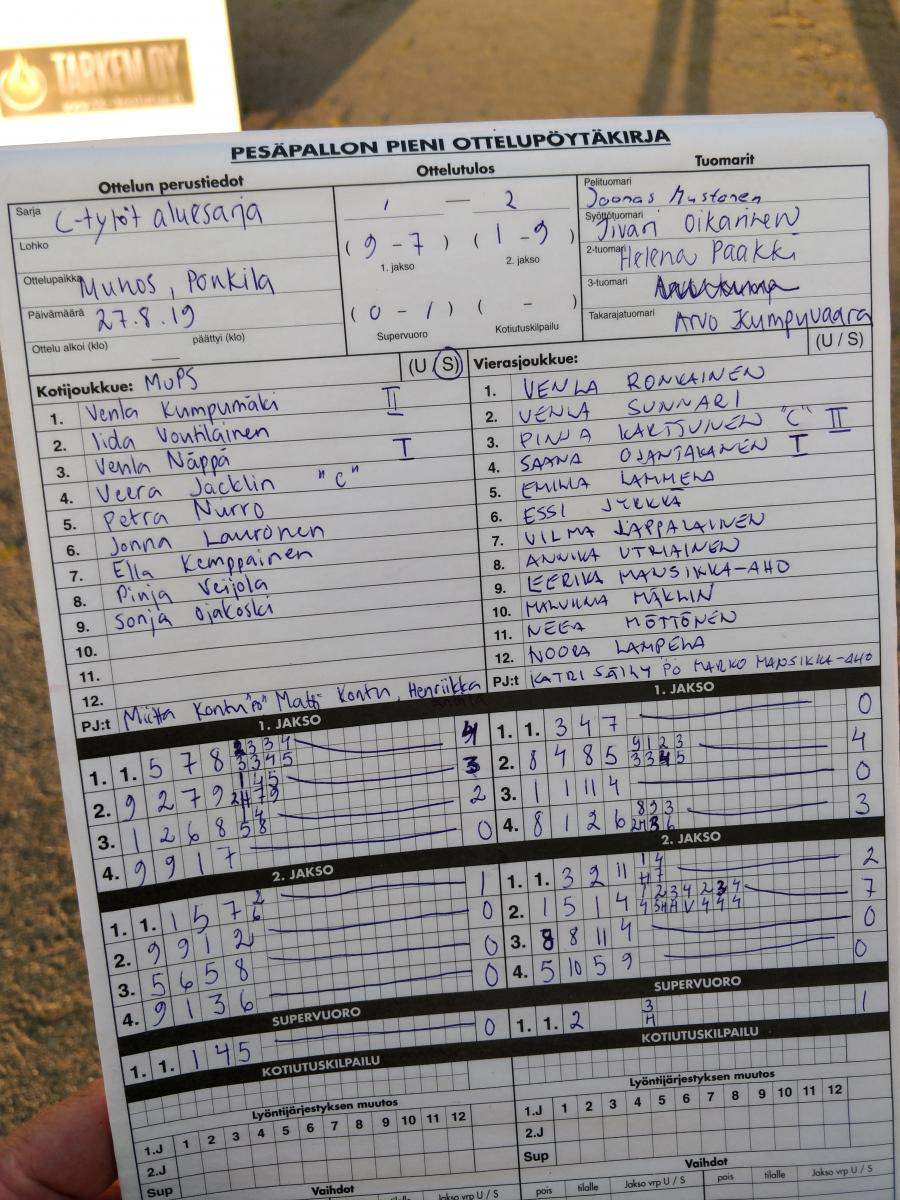 TARKEM OY
PESÄPALLON PIENI OTTELUPÖYTÄKIRJA
Ottelun perustiedot
Sarja C-tytöt aluesarja
Lohko
Ottelupaikka Muhos, Ponkila
Päivämäärä 27.8.19
Ottelu alkoi (klo) — päättyi (klo)
Ottelutulos
1 — 2
(9 - 7) (1 - 9)
1. jakso 2. jakso
(0 - 1) ( - )
Supervuoro Kotiutuskilpailu
Tuomarit
Pelituomari Joonas Mustonen
Syöttötuomari Iivari Oikarinen
2-tuomari Helena Paakki
3-tuomari
Takarajatuomari Arvo Kumpuvaara
Kotijoukkue: MuPS (U / S)
1. Venla Kumpumäki II
2. Iida Voutilainen
3. Venla Näppä I
4. Veera Jacklin "C"
5. Petra Nurro
6. Jonna Lauronen
7. Ella Kemppainen
8. Pinja Veijola
9. Sonja Ojakoski
10.
11.
12.
PJ:t Miitta Kontu "PÖ" Matti Kontu, Henriikka
Vierasjoukkue: (U / S)
1. VENLA RONKAINEN
2. VENLA SUNNARI
3. PINJA KARTTUNEN "C" II
4. SAANA OJANTAKANEN I
5. EMILIA LAMMELA
6. ESSI JYKKÄ
7. VILMA LAPPALAINEN
8. ANNIKA UTRIAINEN
9. EERIKA MANSIKKA-AHO
10. MALVIINA MÄKLIN
11. NEEA MÖTTÖNEN
12. NOORA LAMPELA
PJ:t KATRI SÄILY PÖ MARKO MANSIKKA-AHO
1. JAKSO
1. 1. 5 7 8 2 3 3 4 4
3 3 4 5
2. 9 2 7 9 1 4 5 3
2 4 7 9
3. 1 2 6 8 4 2
5 8
4. 9 9 1 7 0
2. JAKSO
1. 1. 1 5 7 2 1
6
2. 9 9 1 2 0
3. 5 6 5 8 0
4. 9 1 3 6 0
SUPERVUORO
1. 1. 1 4 5 0
KOTIUTUSKILPAILU
Lyöntijärjestyksen muutos
1.J 1 2 3 4 5 6 7 8 9 10 11 12
2.J
Sup
Vaihdot
1. JAKSO
1. 1. 3 4 7 0
2. 8 4 8 5 9 1 2 3 4
3 3 4 5
3. 1 1 11 4 0
4. 8 1 2 6 8 9 3 3
2. JAKSO
1. 1. 3 2 11 1 4 2
4 7
2. 1 5 1 4 1 2 3 4 2 3 4 7
3. 8 8 11 4 0
4. 5 10 5 9 0
SUPERVUORO
1. 1. 2 3 1
4
KOTIUTUSKILPAILU
Lyöntijärjestyksen muutos
1.J 1 2 3 4 5 6 7 8 9 10 11 12
2.J
Sup
Vaihdot
pois tilalle Jakso vrp U / S pois tilalle Jakso vrp U / S